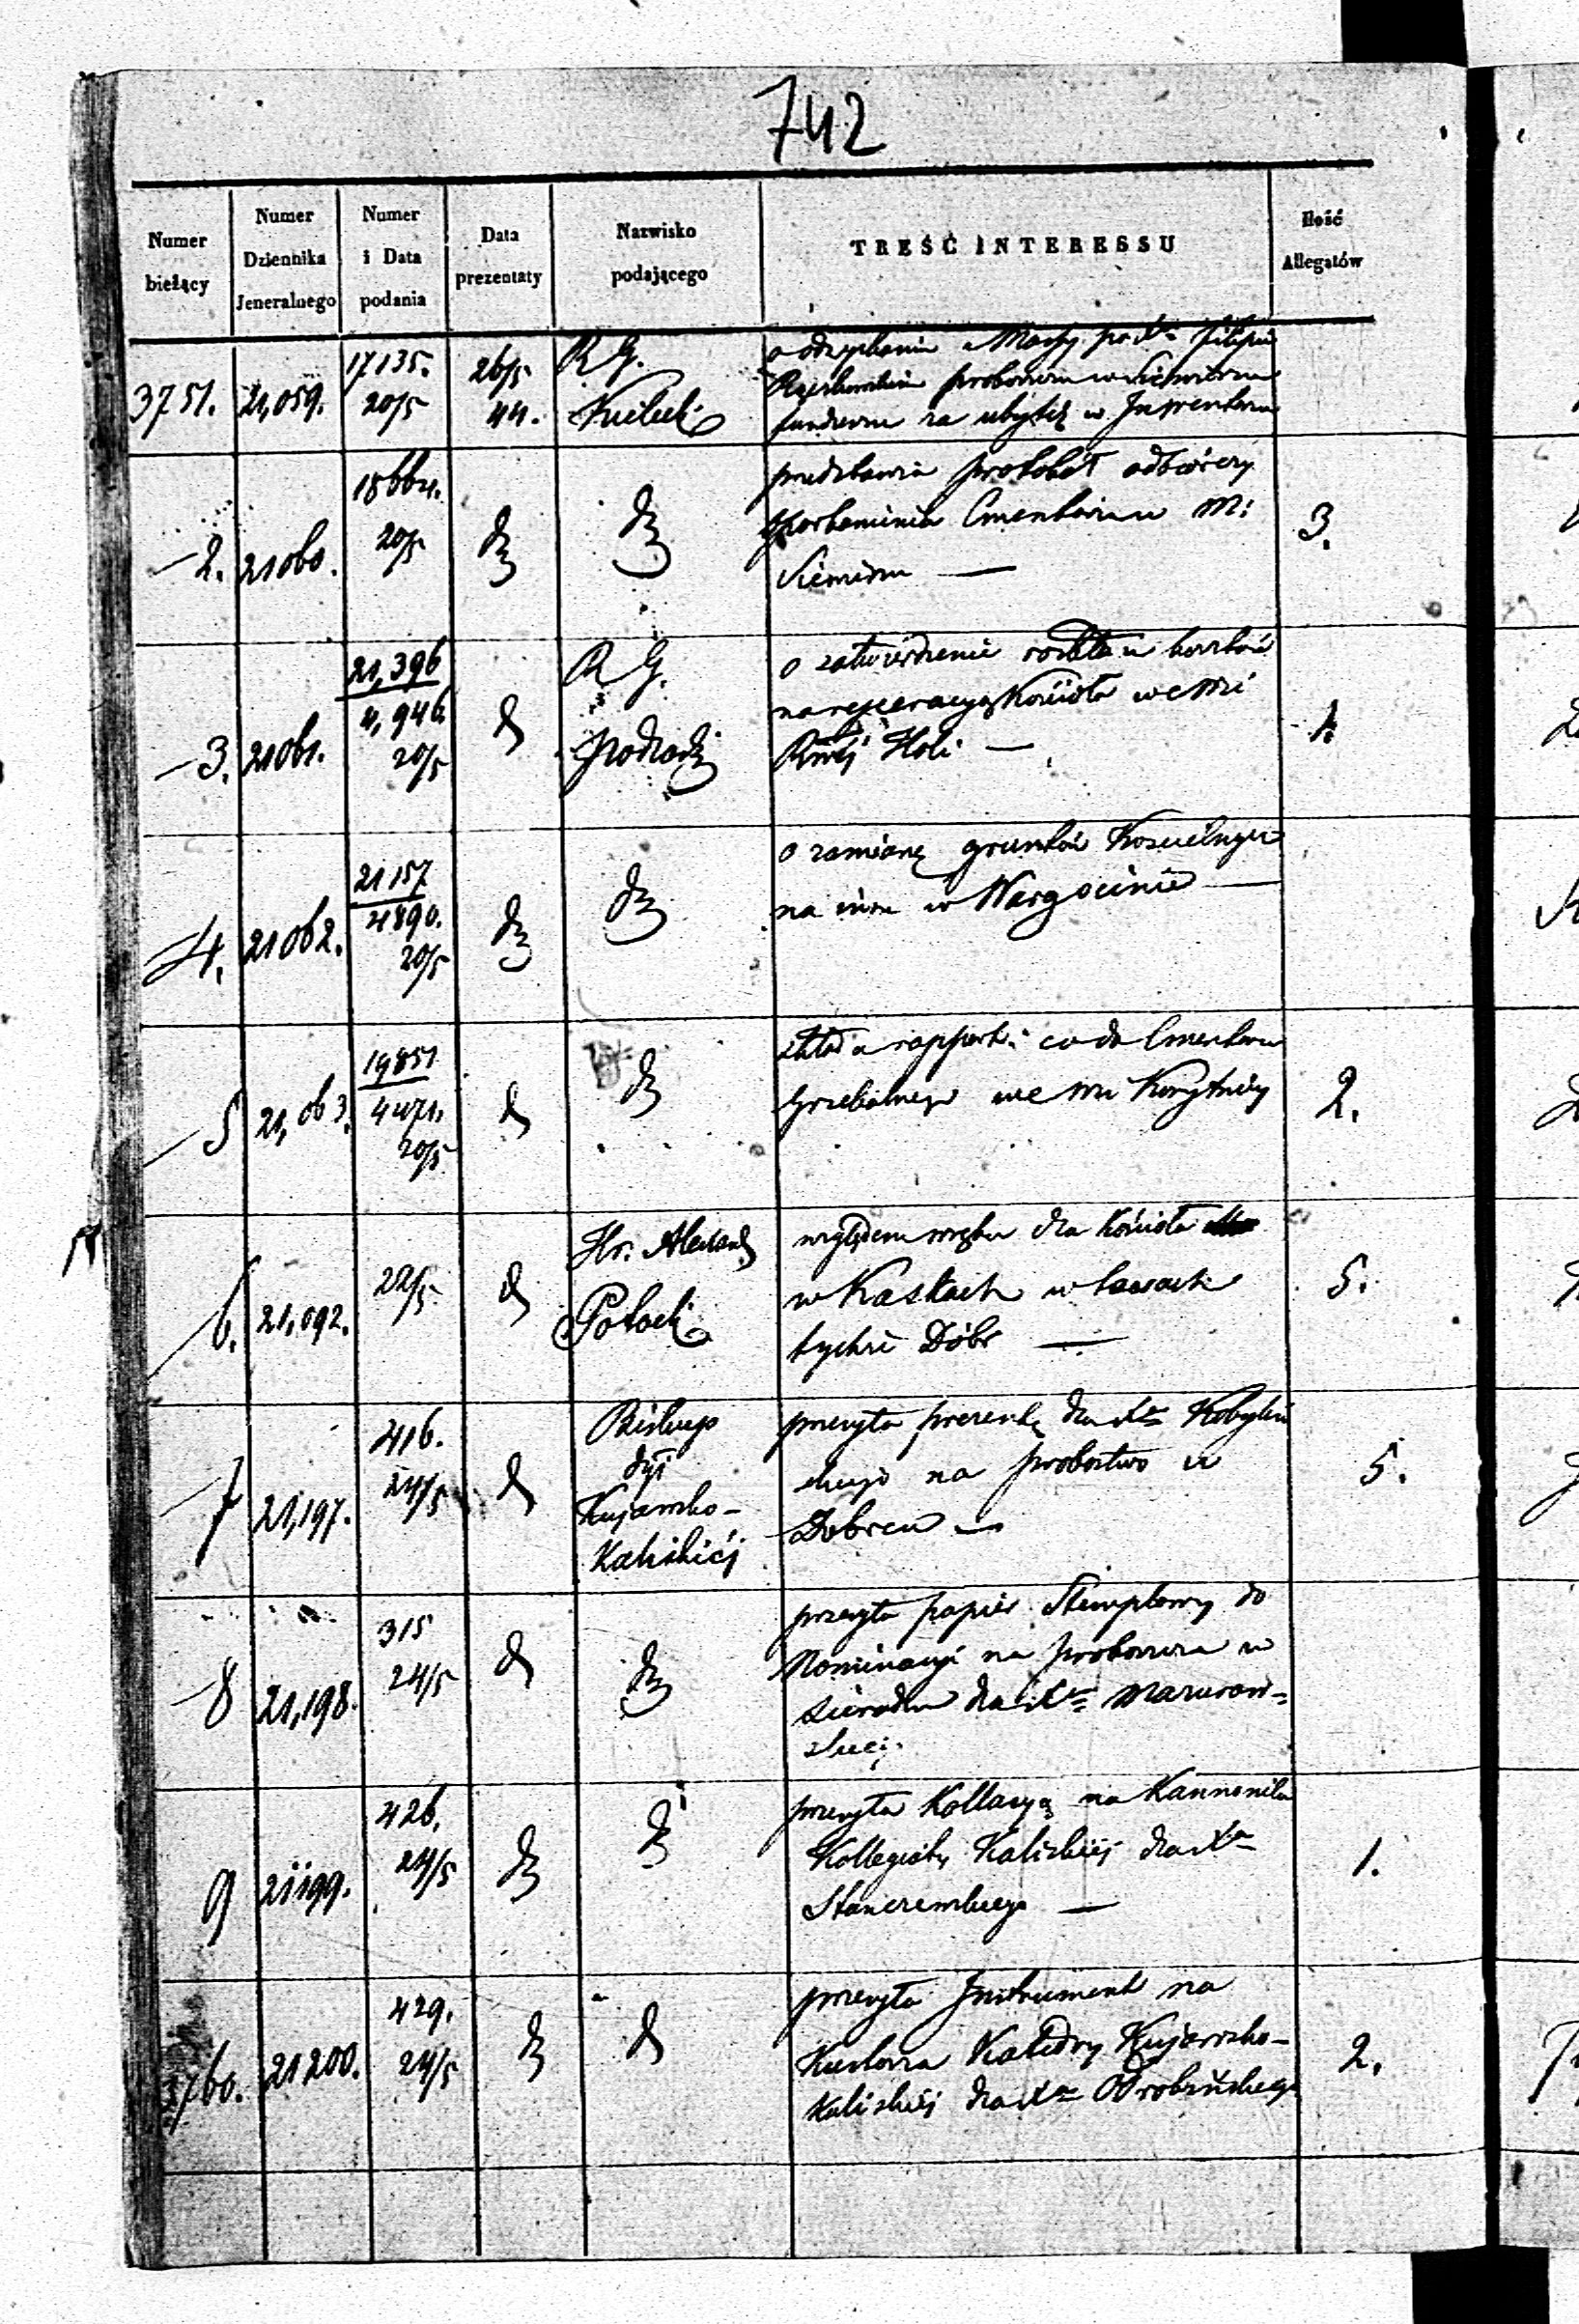 742
Numer bieżący
Numer Dziennika Jeneralnego
Numer i Data podania
Data prezentaty
Nazwisko podającego
TREŚĆ INTERESSU
Ilość Allegatów
3751. 21,059. 17135. 20/5 26/5 44. R. G. Kielecki
o odzyskanie z Massy po Xu Filipie
proboszczu w
funduszu za ubytki w Inwentarzu
2. 21060. 18662. 20/5 do do 3.
przedstawia protokół odbiorczy
Cmentarza w M:
3. 21061. 21,396 4,946. 20/5 do R G. Podlaski 1.
o zatwierdzenie rozkładu kosztów
na reperacyą Kościoła we Wsi
Holi —
4. 21062. 21157 4890. 20/5 do do
o zamianę gruntów Kościelnych
na inne w Wargocinie —
5 21,063. 19851 4471. 20/5 do do 2.
składa rapport co do Cmentarza
Grzebalnego we Wsi Korytnicy
6. 21,092. 22/5 do Hr. Alexand. Potocki 5.
względem wrębu dla Kościoła
w Kaskach w lasach
tychże Dóbr —
7 21,197. 416. 24/5 do Biskup Dyi Kujawsko-Kaliskiéj 5.
przesyła prezentę dla Xa Kobyliń
skiego na probostwo w
Dobrcu —
8 21,198. 315 24/5 do do
przesyła papier Stemplowy do
Nominacyi na proboszcza w
Sieradzu dla Xa Mazurow=
9 21199. 426. 24/5 do do 1.
przesyła Kollacyą na Kannonika
Kollegiaty Kaliskiéj dla Xa
—
3760. 21200. 429. 24/5 do do 2.
przesyła Instrument na
Kustosza Katedry Kujawsko-
Kaliskiéj dla Xa